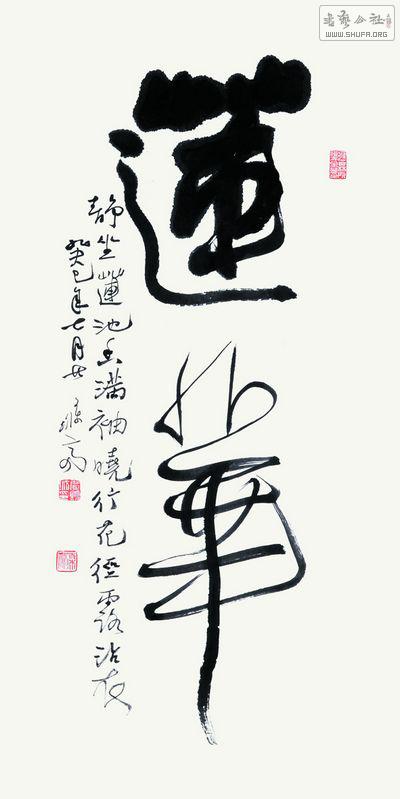 蓮華
静坐蓮池香满袖曉行花徑露沾衣
癸巳年七月廿
書艺公社
WWW.SHUFA.ORG